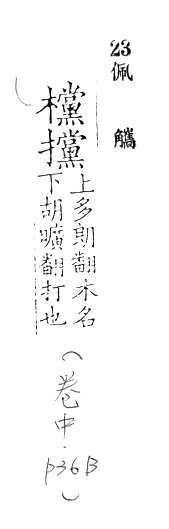 23
佩觿
欓㩳
上多朗翻木名
下胡曠翻打也
(卷中.p36B)